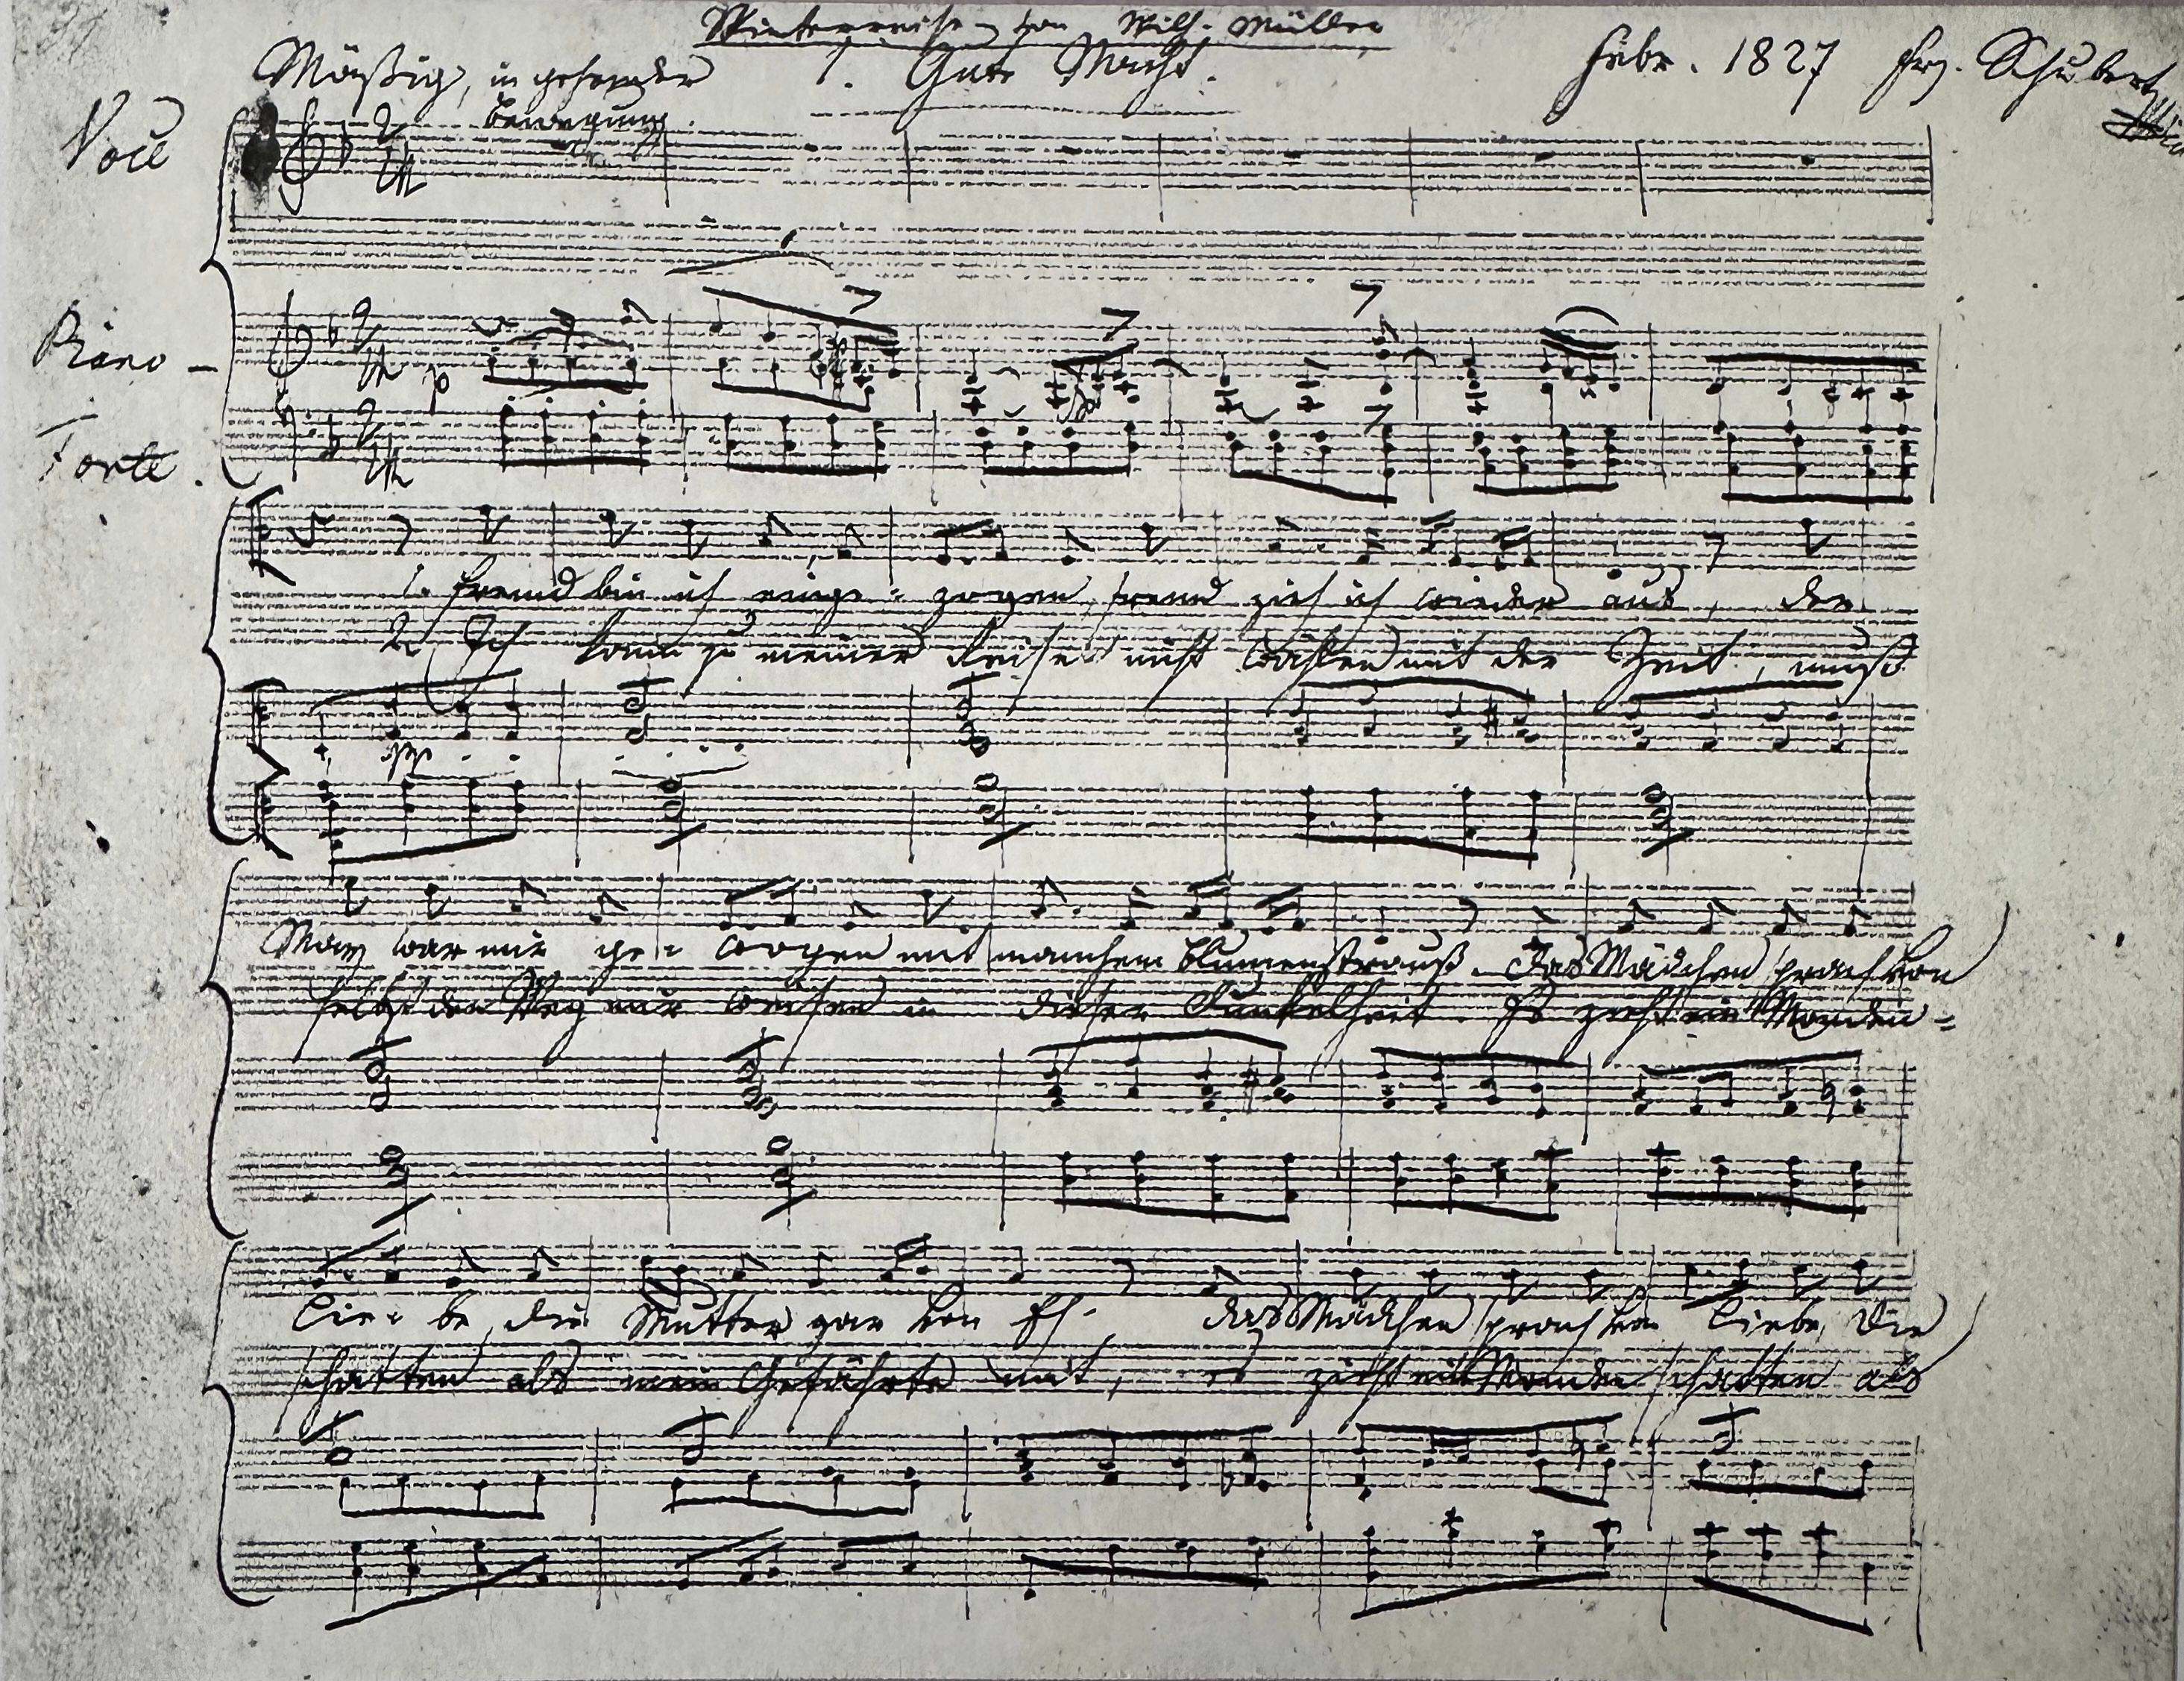 Winterreise von Wilh. Müller
Mäßig, in gehender 1. Gute Nacht. Febr. 1827 Frz. Schubert
Bewegung.
Voce
Piano-
Forte.
p
1. Fremd bin ich einge= zogen, fremd zieh ich wieder aus, der
2. Ich kann zu meiner Reisen nicht wählen mit der Zeit, muß
pp
May war mir ge= wogen mit manchem Blumenstrauß. Das Mädchen sprach von
selbst den Weg mir weisen in dieser Dunkelheit. Es zieht ein Monden=
Lie= be, die Mutter gar von Eh. das Mädchen sprach von Liebe, die
schatten als mein Gefährte mit, es zieht ein Mondenschatten als